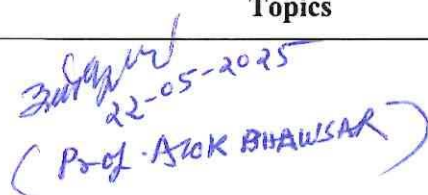 Topics
22-05-2025
(Prof. ALOK BHAWSAR)